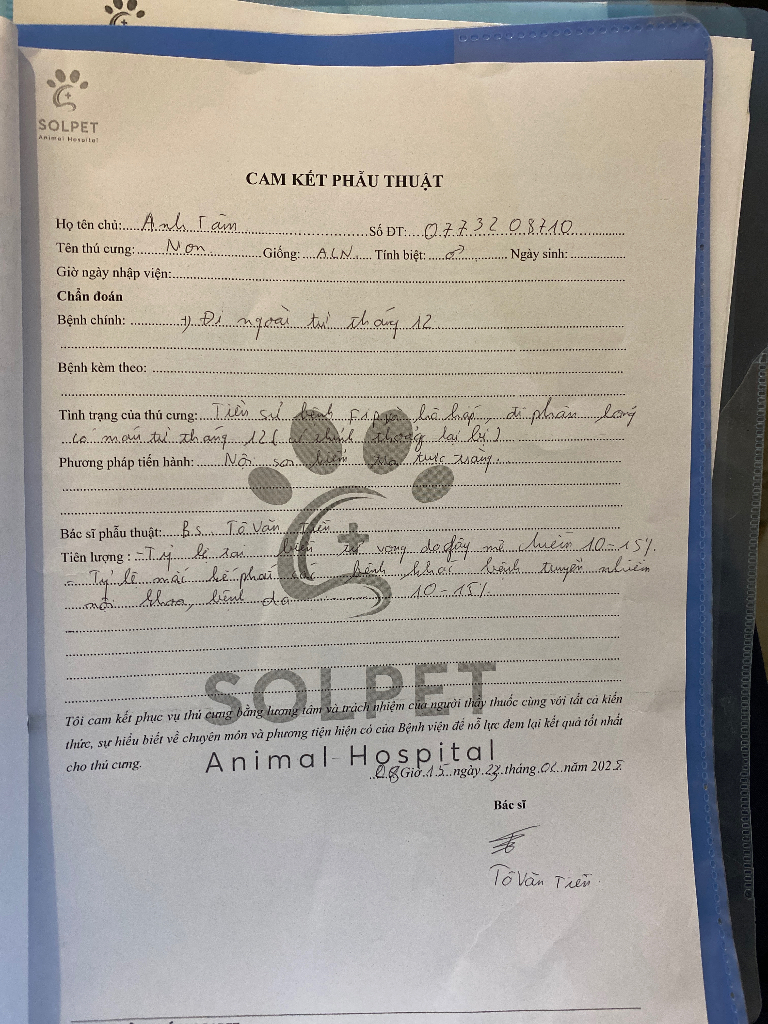 SOLPET
Animal Hospital
CAM KẾT PHẪU THUẬT
Họ tên chủ: Anh Tâm Số ĐT: 0773208710
Tên thú cưng: Mon Giống: ALN Tính biệt: ♂ Ngày sinh:
Giờ ngày nhập viện:
Chẩn đoán
Bệnh chính: 1) Đi ngoài từ tháng 12
Bệnh kèm theo:
Tình trạng của thú cưng: Tiền sử bệnh hô hấp, đi phân lỏng
có máu từ tháng 12 ( thỉnh thoảng lại bị )
Phương pháp tiến hành: Nội soi kiểm tra trực tràng.
Bác sĩ phẫu thuật: B.S Tô Văn Tiến
Tiên lượng : - Tỷ lệ tử vong do gây mê chiếm 10-15%.
- Tỷ lệ mắc kế phát các bệnh khác bệnh truyền nhiễm
nội khoa, bệnh da 10-15%
SOLPET
Animal Hospital
Tôi cam kết phục vụ thú cưng bằng lương tâm và trách nhiệm của người thầy thuốc cùng với tất cả kiến
thức, sự hiểu biết về chuyên môn và phương tiện hiện có của Bệnh viện để nỗ lực đem lại kết quả tốt nhất
cho thú cưng.
08 Giờ 15 ngày tháng 02 năm 2025
Bác sĩ
Tô Văn Tiến